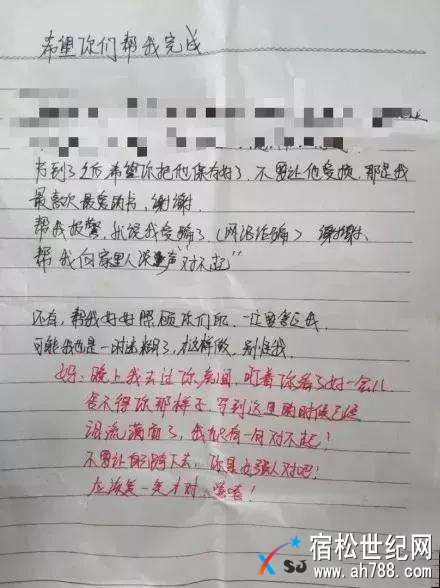 希望你们帮我完成
为到了之后希望你把他保存好了,不要让他受损,那是我
最喜欢最爱的书,谢谢.
帮我报警,就说我受骗了(网络诈骗)谢谢、
帮我向家里人说声"对不起"
还有,帮我好好照顾你们自己.一定要忘了我.
可能我也是一时迷糊了,才这样做,别怪我.
妈:晚上我去过你房间,盯着你看了好一会儿
舍不得你那样子,写到这里的时候已经
泪流满面了,我只有一句对不起!
不要让自己垮下去,你是女强人对吧!
应该笑一笑才对,嘻嘻!
SJ
宿松世纪网
www.ah788.com